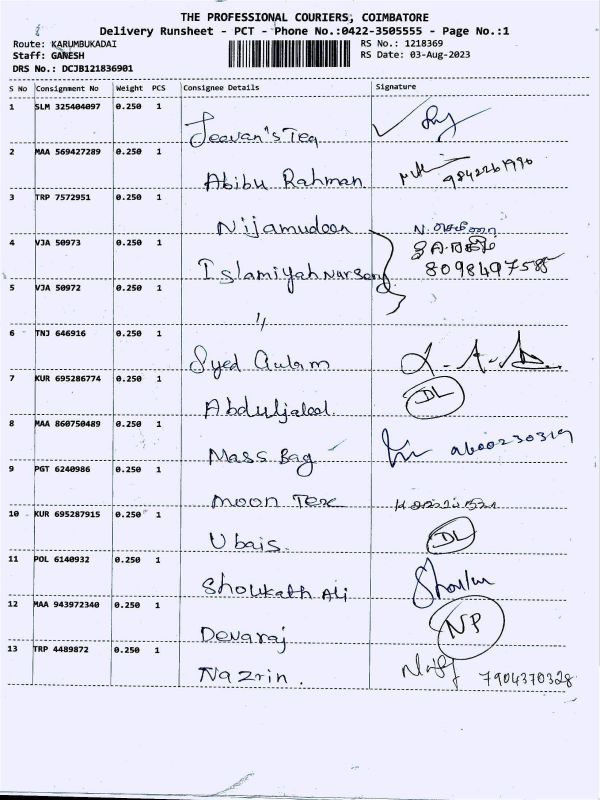 THE PROFESSIONAL COURIERS, COIMBATORE
Delivery Runsheet - PCT - Phone No.:0422-3505555 - Page No.:1
Route: KARUMBUKADAI
RS No.: 1218369
Staff: GANESH
RS Date: 03-Aug-2023
DRS No.: DCJB121836901
S No Consignment No Weight PCS Consignee Details Signature
1 SLM 325404097 0.250 1
Jeevan's Tea
2 MAA 569427289 0.250 1
Abibu Rahman 9842261990
3 TRP 7572951 0.250 1
Nijamudeen
4 VJA 50973 0.250 1
Islamiyah Nursery 8098497585
5 VJA 50972 0.250 1
〃
6 TNJ 646916 0.250 1
Syed Gulam
7 KUR 695286774 0.250 1 DL
Abduljaleel
8 MAA 860750489 0.250 1
Mass Bag
9 PGT 6240986 0.250 1
Moon Tex
10 KUR 695287915 0.250 1
Ubais. DL
11 POL 6140932 0.250 1
Shoukath Ali
12 MAA 943972340 0.250 1
Devaraj NP
13 TRP 4489872 0.250 1
Nazrin. 7904370328